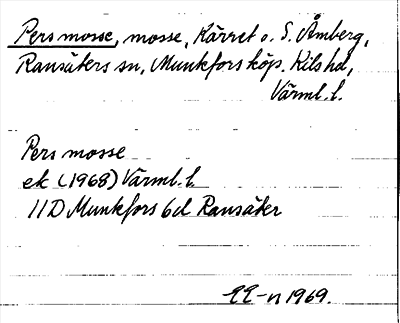 Pers mosse, mosse, Kärret o. S. Åmberg,
Ransäters sn, Munkfors köp. Kils hd,
Värml. l.
Pers mosse
ek (1968) Värml. l.
11D Munkfors 6d Ransäter
1969.